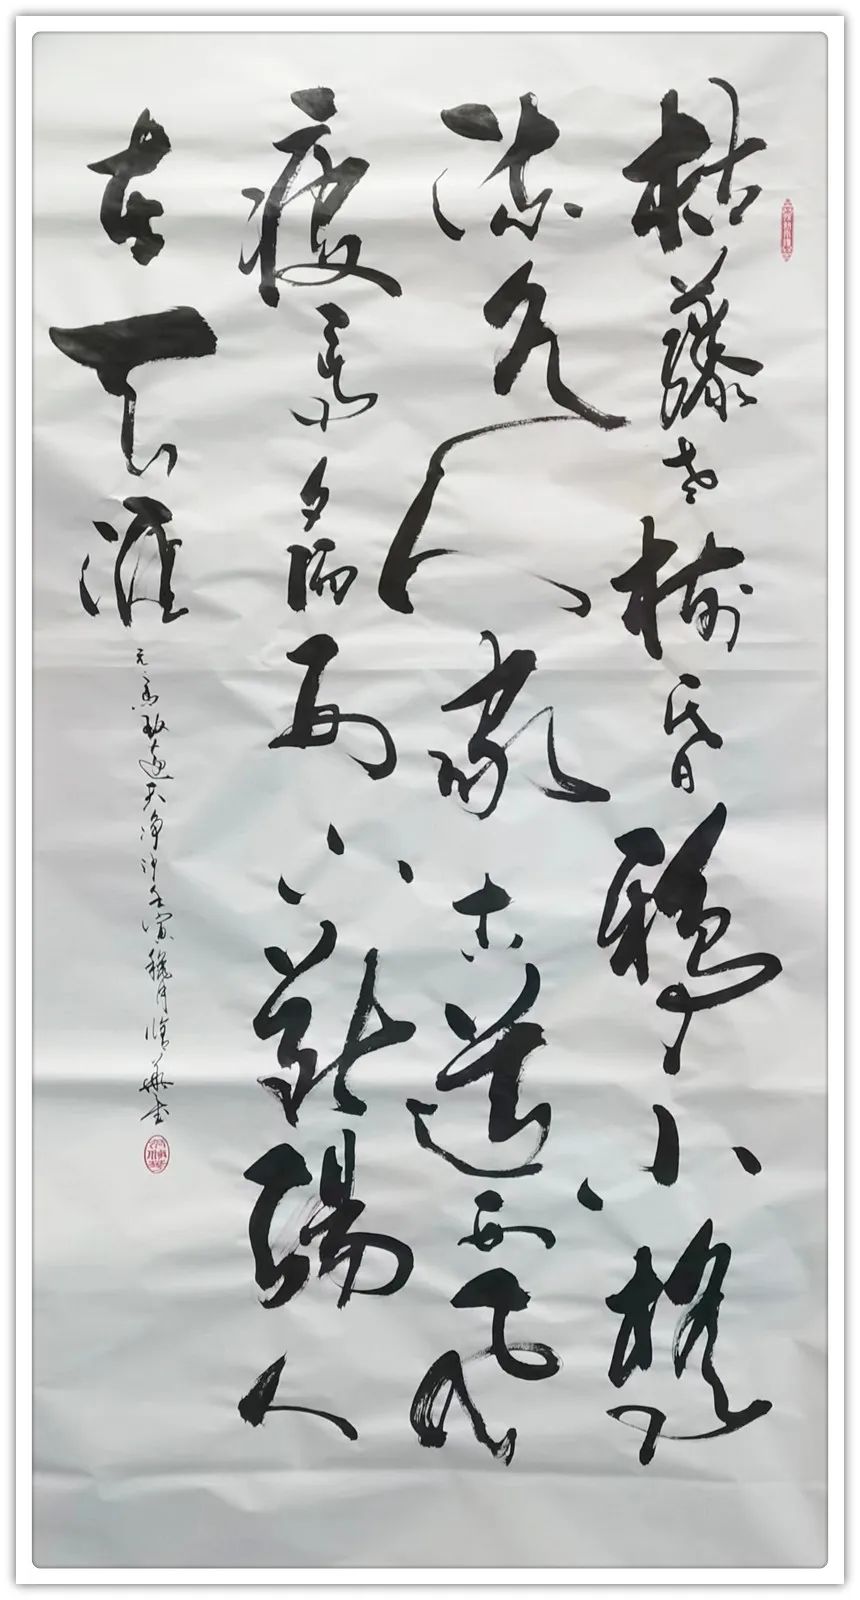 枯藤老树昏鸦小橋
流水人家古道西风
瘦馬夕陽西下断腸人
在天涯
元马致遠天净沙壬寅穐月華书